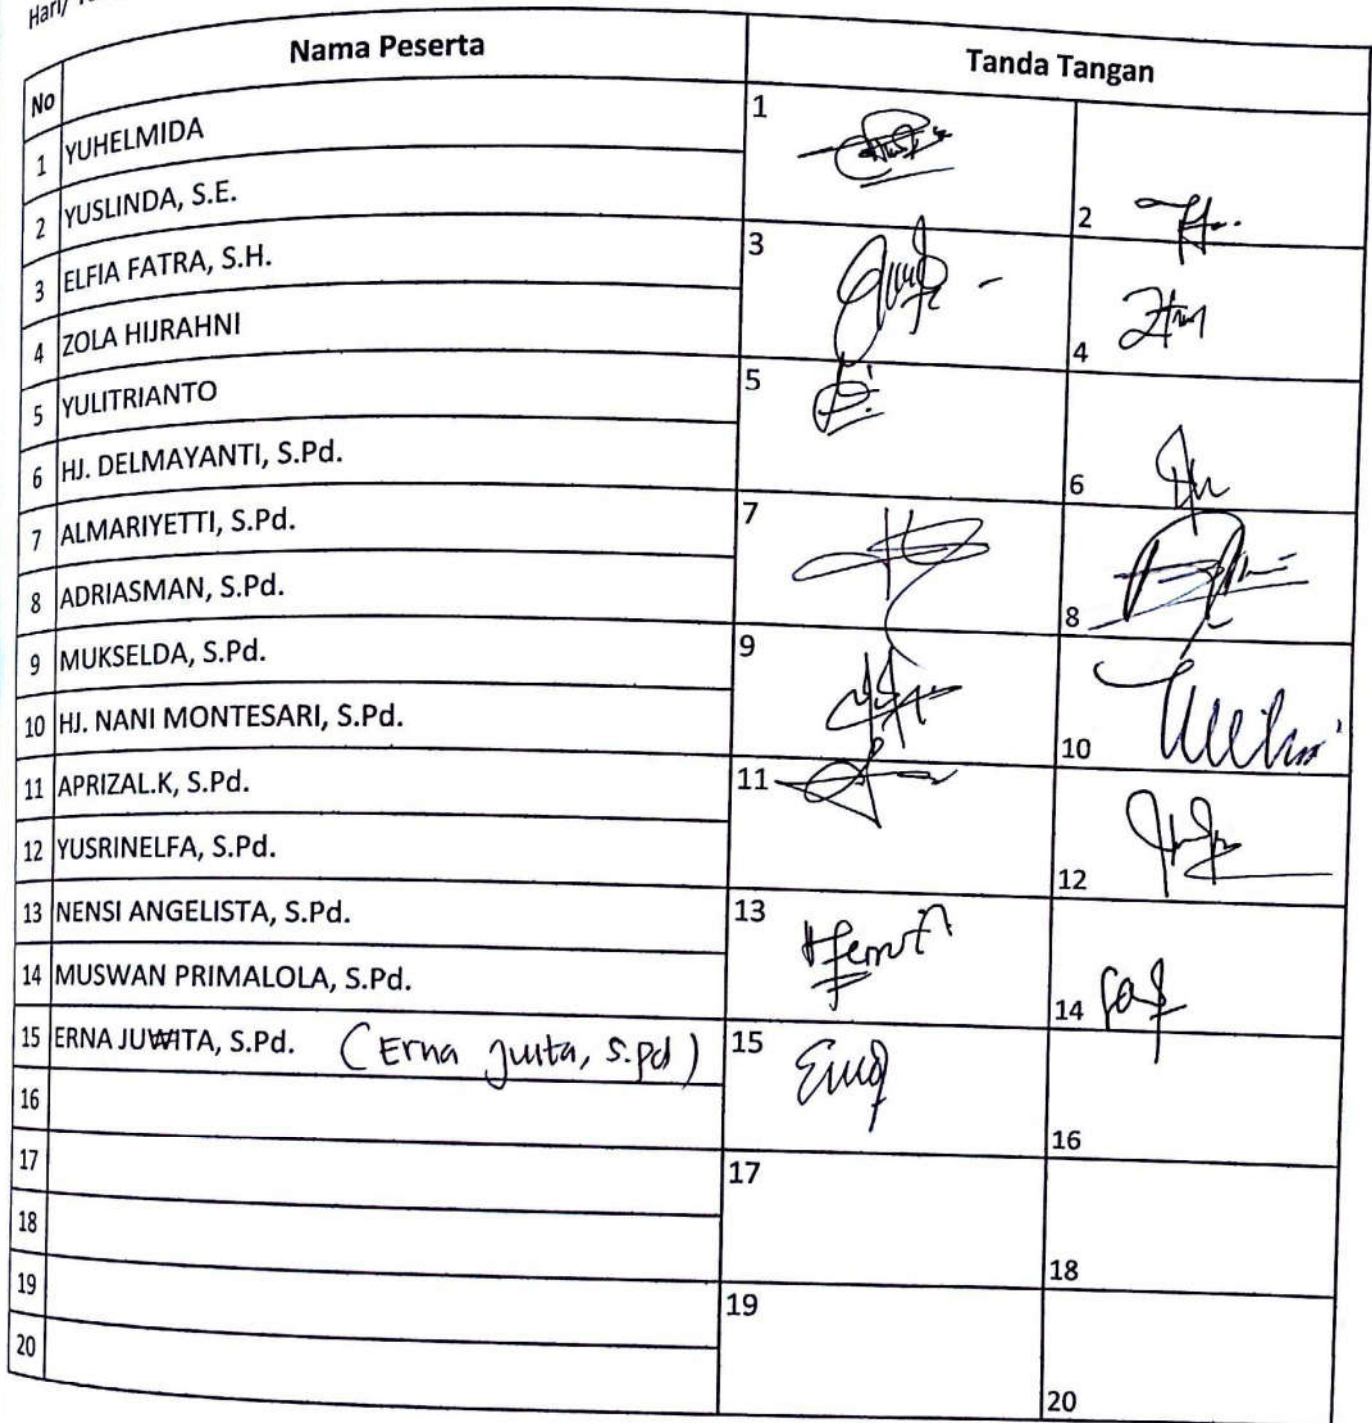 Hari/
No Nama Peserta Tanda Tangan
1 YUHELMIDA 1
2 YUSLINDA, S.E. 2
3 ELFIA FATRA, S.H. 3
4 ZOLA HIJRAHNI 4
5 YULITRIANTO 5
6 HJ. DELMAYANTI, S.Pd. 6
7 ALMARIYETTI, S.Pd. 7
8 ADRIASMAN, S.Pd. 8
9 MUKSELDA, S.Pd. 9
10 HJ. NANI MONTESARI, S.Pd. 10
11 APRIZAL.K, S.Pd. 11
12 YUSRINELFA, S.Pd. 12
13 NENSI ANGELISTA, S.Pd. 13
14 MUSWAN PRIMALOLA, S.Pd. 14
15 ERNA JUWITA, S.Pd. (Erna Juita, S.pd) 15
16 16
17 17
18 18
19 19
20 20